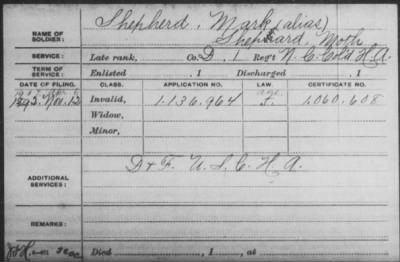 Shepherd, Mark (alias)
NAME OF SOLDIER:
Shephard, Moth
SERVICE: Late rank, Co. D, 1 Reg't N. C. Col'd H. A.
TERM OF SERVICE: Enlisted , 1 Discharged , 1
DATE OF FILING. CLASS. APPLICATION NO. LAW. CERTIFICATE NO.
1892, Nov. 12 Invalid, 1.136.964 1.060.608
Widow,
Minor,
ADDITIONAL SERVICES: D + F. U. S. C. H. A.
REMARKS:
Died , 1 , at